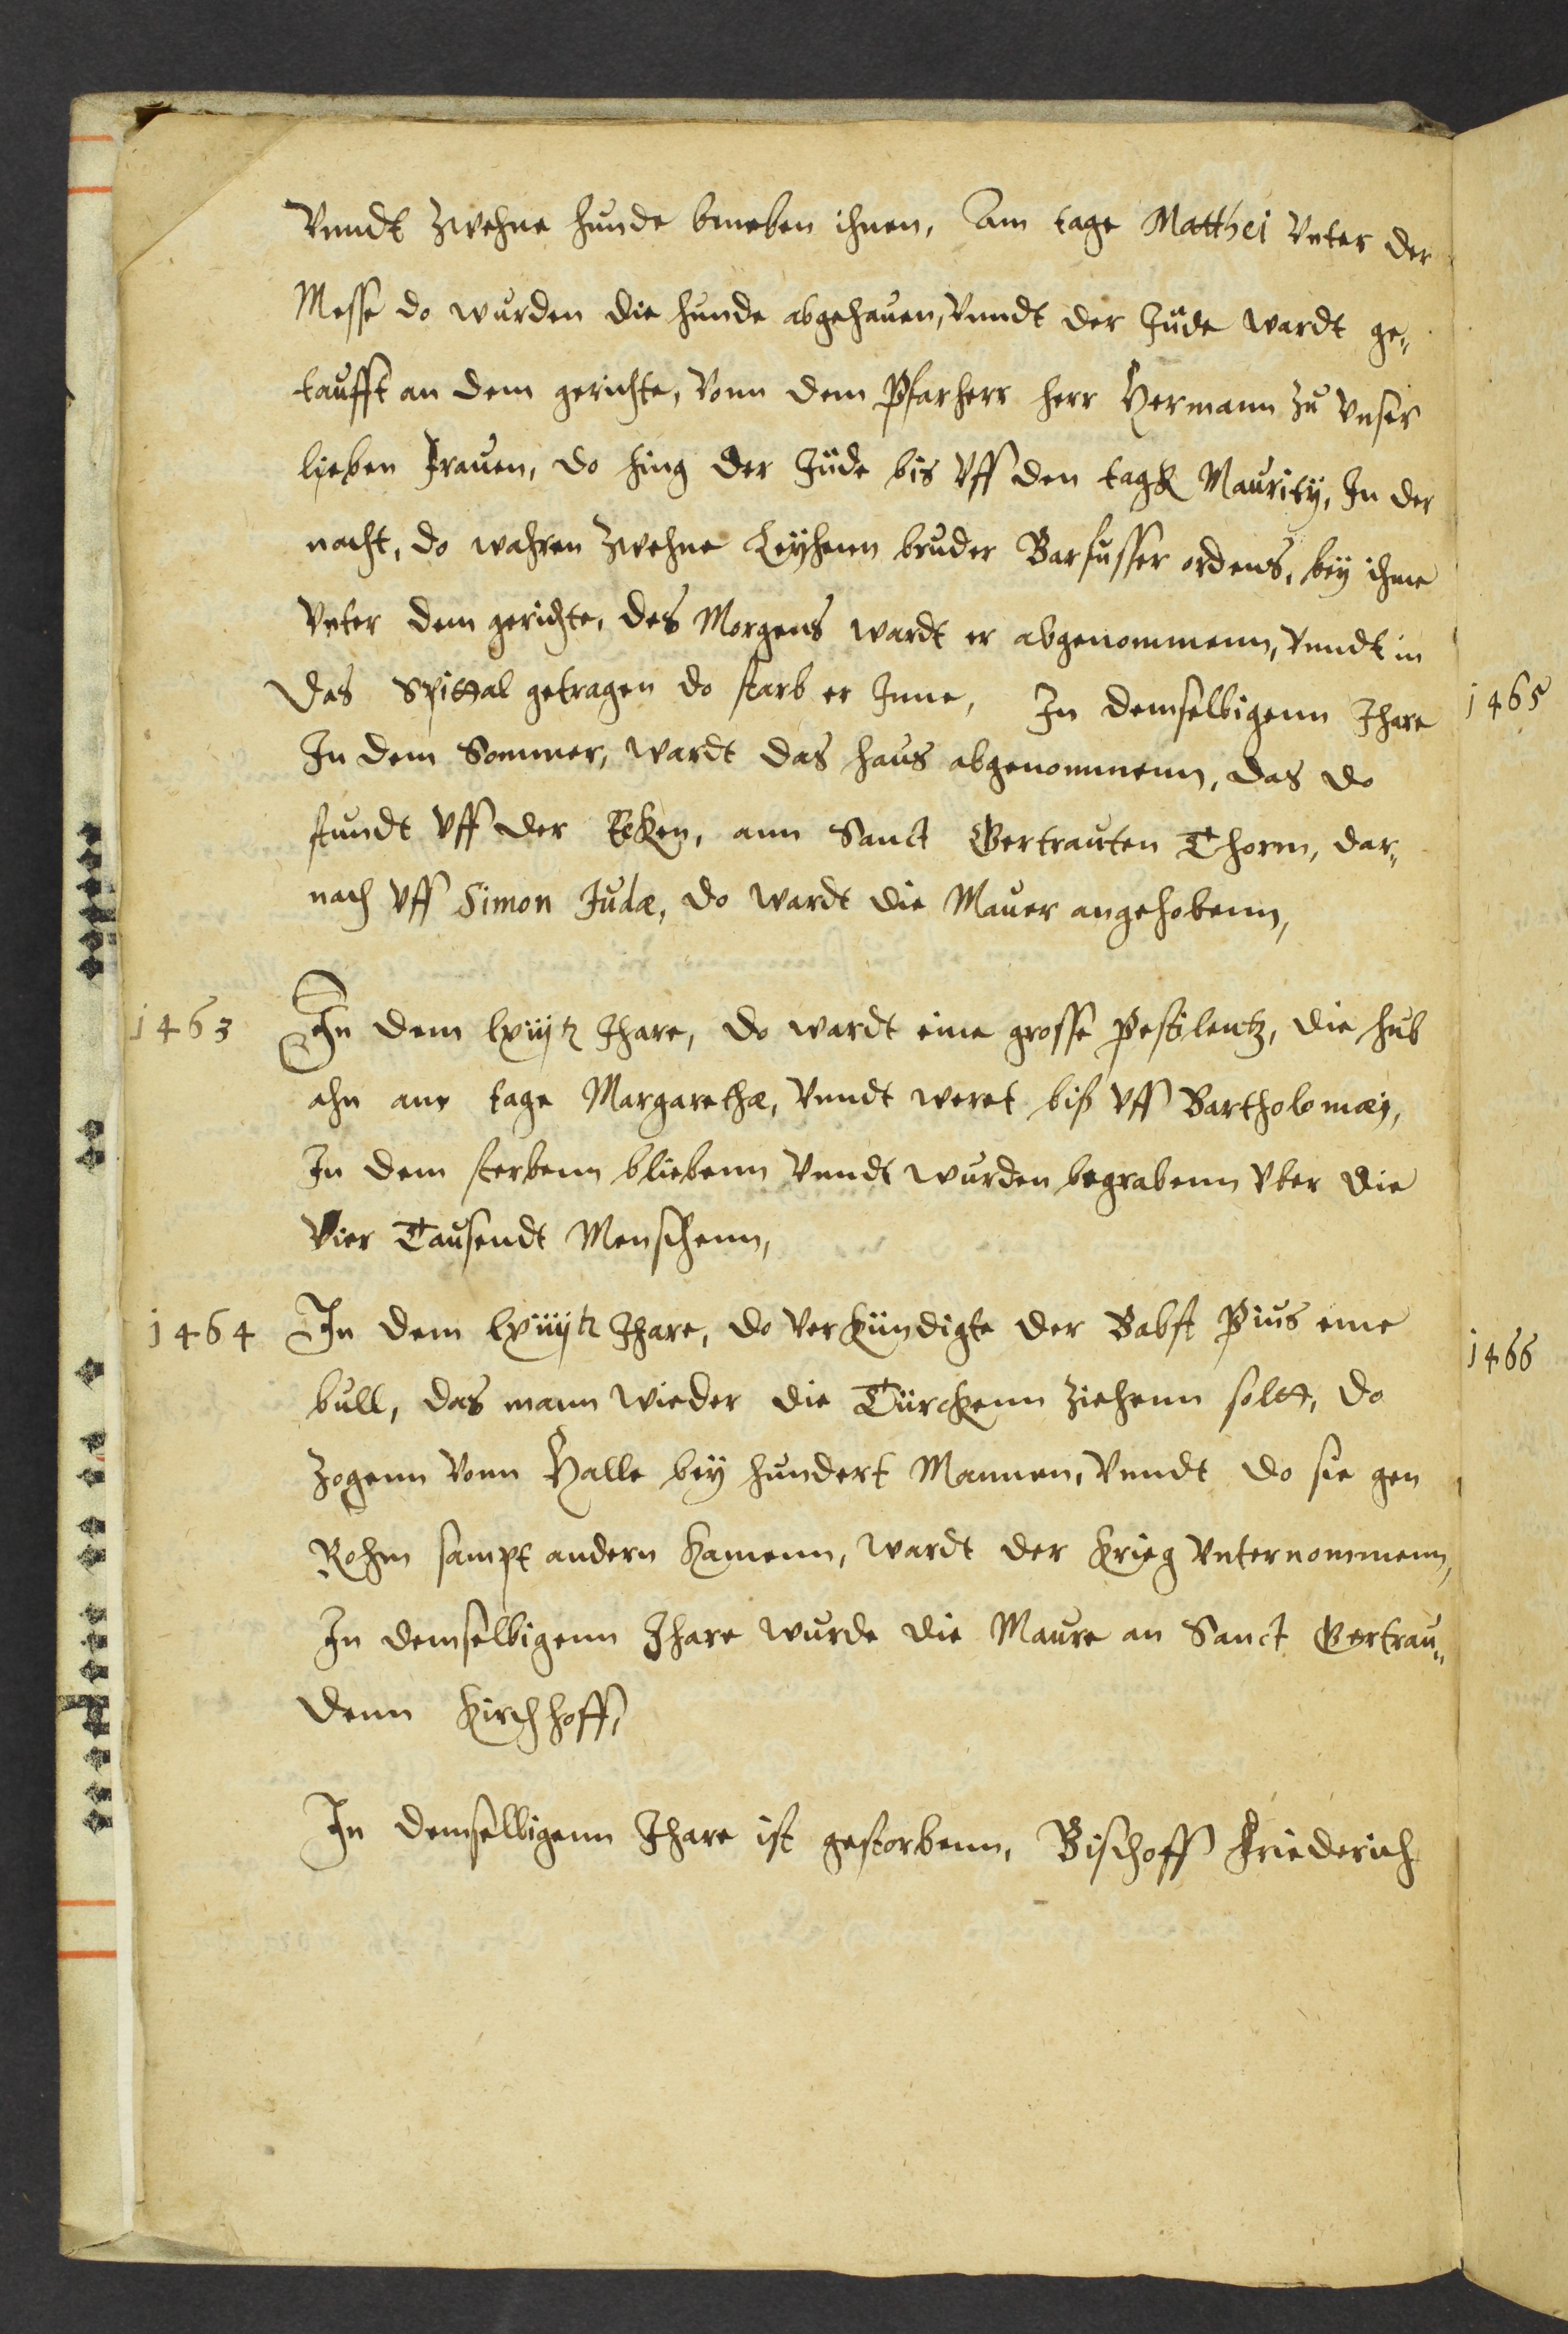 Vnndt zwehne hunde bneben ihnen, Am tage Matthei Vnter der
Messe do wurden die hunde abgehauen, Vnndt der Jude wardt ge„
taufft an dem gerichte, Vonn dem Pfarherr herr Hermann zu Vnser
lieben Frauen, do hing der Jude bis Vff den tagk Maurity, In der
nacht, do wahren zwehne Leyhenn bruder Barfusser ordens, bey ihme
Vnter dem gerichte, des Morgens wardt er abgenommenn, Vnndt in
das Spittal getragen do starb er Inne, In demselbigenn Jhare
In dem Sommer, wardt das haus abgenommenn, das do
stundt Vff der Ecken, ann Sanct Gertrauten Thorm, dar„
nach Vff Simon Judæ, do wardt die Mauer angehobenn,
1463 In dem lxiij Jhare, do wardt eine grosse Pestilentz, die hub
ahn ane tage Margarethæ, Vnndt weret biß Vff Bartholomæj,
In dem sterbenn bliebenn Vnndt wurden begrabenn Vber die
Vier Tausendt Menschenn,
1464 In dem lxiiij Jhare, do Verkündigte der Babst Pius eine
bull, das mann wieder die Türckenn ziehenn soltt, do
zogenn Vonn Halle bey hundert Mannen, Vnndt do sie gen
Rohm sampt andern kamenn, wardt der krieg Vnternommenn,
In demselbigenn Jhare wurde die Maure an Sanct Gertrau„
denn Kirchhoff,
In demselbigenn Jhare ist gestorbenn, Bischoff Friederich
1465
1466